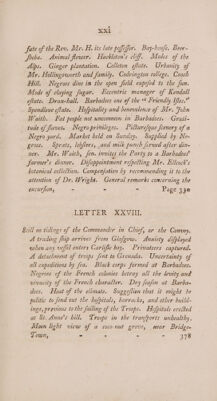 xxi
fate of the Rev. Mr. H. its late possessor. Boy-house. Bore-
shoba. Animal flower. Hackleton's cliff. Modes of the
Alps. Ginger plantation. Colleton estate. Urbanity of
Mr. Hollingsworth and family. Codrington college. Coach
Hill. Negroes dine in the open field exposed to the sun.
Mode of claying sugar. Eccentric manager of Kendall
estate. Drax-hall. Barbadoes one of the "Friendly Isles."
Spendlove estate. Hospitality and benevolence of Mr. John
Waith. Fat people not uncommon in Barbadoes. Grati-
tude of slaves. Negro privileges. Picturesque scenery of a
Negro yard. Market held on Sunday. Supplied by Ne-
groes. Sprats, lobsters, and milk punch served after din-
ner. Mr. Waith, sen. invites the Party to a Barbadoes'
farmer's dinner. Disappointment respecting Mr. Ellcock's
botanical collection. Compensation by recommending it to the
attention of Dr. Wright. General remarks concerning the
excursion, - - - Page 330
LETTER XXVIII.
Still no tidings of the Commander in Chief, or the Convoy.
A trading ship arrives from Glasgow. Anxiety displayed
when any vessel enters Carlisle bay. Privateers captured.
A detachment of troops sent to Grenada. Uncertainty of
all expeditions by sea. Black corps formed at Barbadoes.
Negroes of the French colonies betray all the levity and
vivacity of the French character. Dry season at Barba-
does. Heat of the climate. Suggestion that it might be
politic to send out the hospitals, barracks, and other build-
ings, previous to the sailing of the Troops. Hospitals erected
at St. Anne's hill. Troops in the transports unhealthy.
Moon light view of a coco nut grove, near Bridge-
Town, - - - - 378